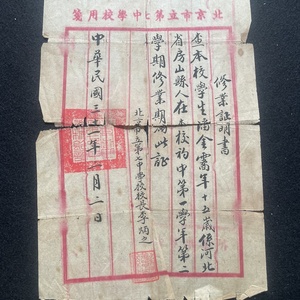 北京市立第七中學校用箋
修業証明書
查本校學生潘金需年十五歲係河北
省房山縣人在本校初中第一學年第二
學期修業期滿此証
北京市立第七中學校校長李炳之
中華民國三十一年 月二日